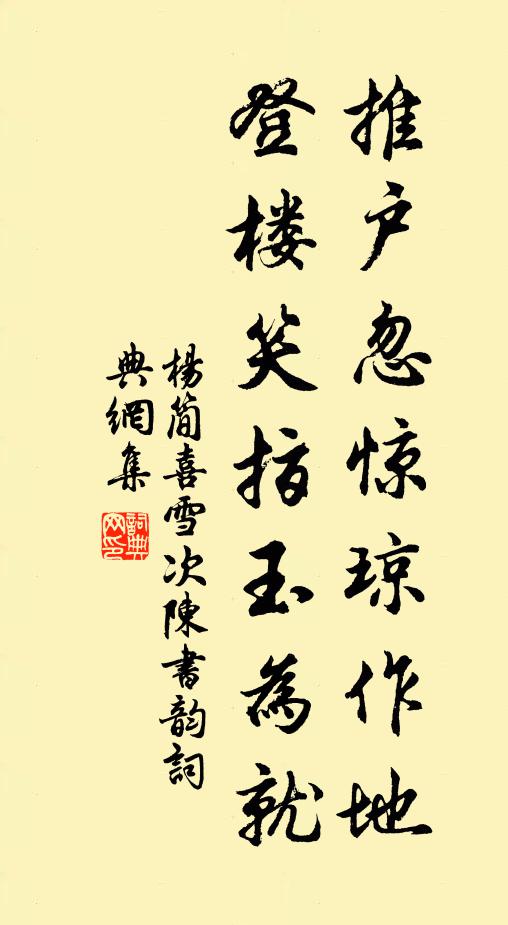 推户忽惊琼作地
登楼笑指玉為就
楊简喜雪次陳書韵詞
典網集
詞典
网印